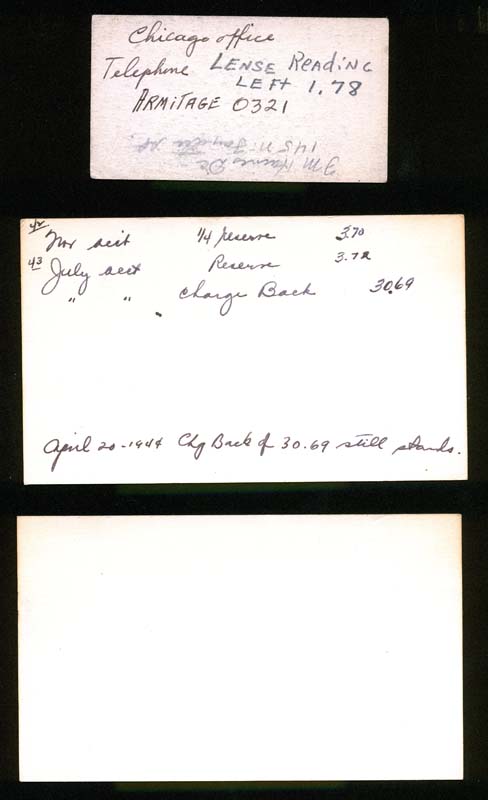 Chicago office
Telephone LENSE READING
LEFT 1.78
ARMITAGE 0321
145 N.
42
Nov acct 1/4 reserve 3.70
43
July acct Reserve 3.72
" " charge Back 30.69
April 20-1944 Chg Back of 30.69 still stands.